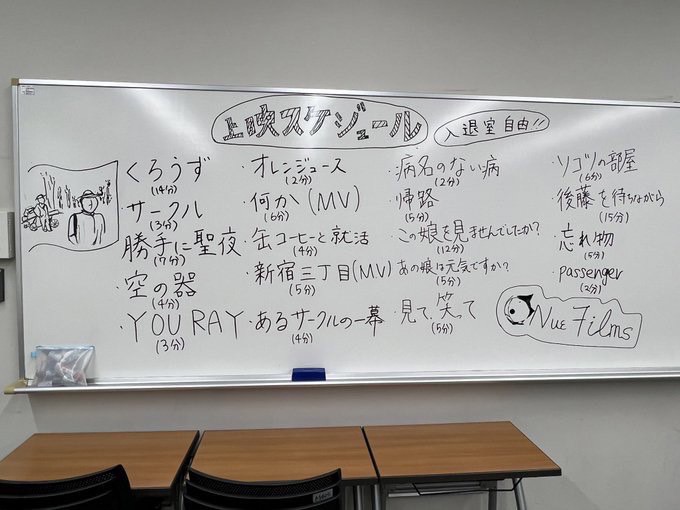 上映スケジュール
入退室自由!!
くろうず
(14分)
・サークル
(3分)
勝手に聖夜
(7分)
・空の器
(4分)
・YOU RAY
(3分)
・オレンジュース
(2分)
・何か(MV)
(6分)
・缶コーヒーと就活
(4分)
・新宿三丁目(MV)
(5分)
・あるサークルの一幕
(4分)
・病名のない病
(2分)
・帰路
(5分)
・この娘を見ませんでしたか?
(12分)
あの娘は元気ですか?
(5分)
・見て、笑って
(5分)
・ソゴツの部屋
(6分)
後藤を待ちながら
(15分)
・忘れ物
(5分)
・passenger
(2分)
Nue Films